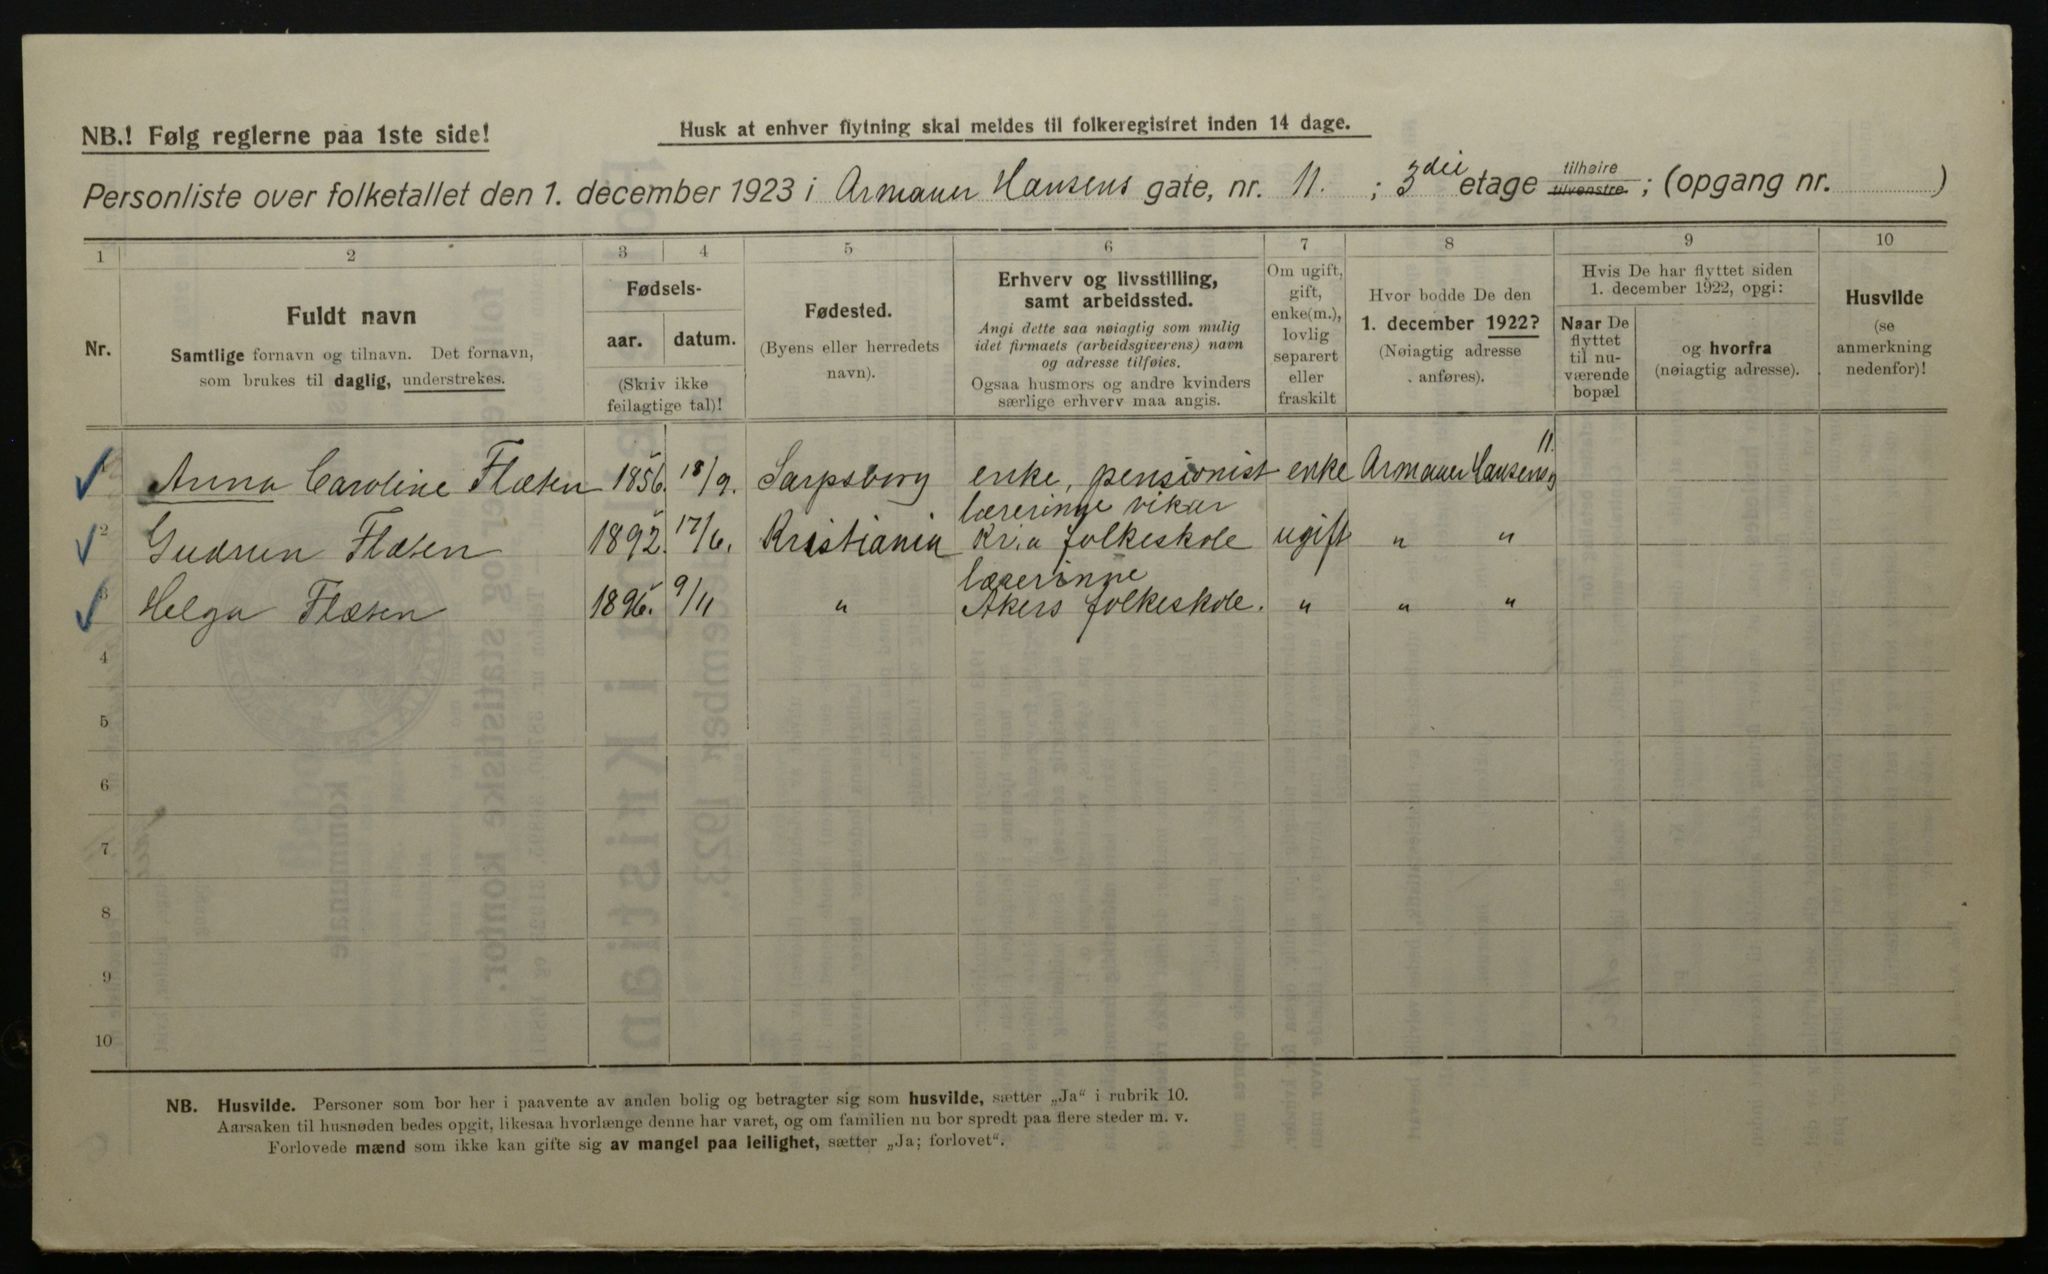 NB.! Følg reglerne paa 1ste side!
Husk at enhver flytning skal meldes til folkeregistret inden 14 dage.
Personliste over folketallet den 1. december 1923 i Armauer Hansens gate, nr. 11. ; 3die etage tilhøire tilvenstre ; (opgang nr. )
1 2 3 4 5 6 7 8 9 10
Nr.
Fuldt navn
Samtlige fornavn og tilnavn. Det fornavn,
som brukes til daglig, understrekes.
Fødsels-
aar. datum.
(Skriv ikke
feilagtige tal)!
Fødested.
(Byens eller herredets
navn).
Erhverv og livsstilling,
samt arbeidssted.
Angi dette saa nøiagtig som mulig
idet firmaets (arbeidsgiverens) navn
og adresse tilføies.
Ogsaa husmors og andre kvinders
særlige erhverv maa angis.
Om ugift,
gift,
enke(m.),
lovlig
separert
eller
fraskilt
Hvor bodde De den
1. december 1922?
(Nøiagtig adresse
anføres).
Hvis De har flyttet siden
1. december 1922, opgi:
Naar De
flyttet
til nu-
værende
bopæl
og hvorfra
(nøiagtig adresse).
Husvilde
(se
anmerkning
nedenfor)!
Anna Caroline Flæten 1856. 18/9. Sarpsborg enke, pensionist enke Armauer Hansensg 11.
lærerinne vikar
2 Gudrun Flæten 1892. 17/6. Kristiania Kr.a folkeskole ugift " "
lærerinne
3 Helga Flæten 1896. 9/11 " Akers folkeskole. " " "
4
5
6
7
8
9
10
NB. Husvilde. Personer som bor her i paavente av anden bolig og betragter sig som husvilde, sætter „Ja“ i rubrik 10.
Aarsaken til husnøden bedes opgit, likesaa hvorlænge denne har varet, og om familien nu bor spredt paa flere steder m. v.
Forlovede mænd som ikke kan gifte sig av mangel paa leilighet, sætter „Ja; forlovet“.